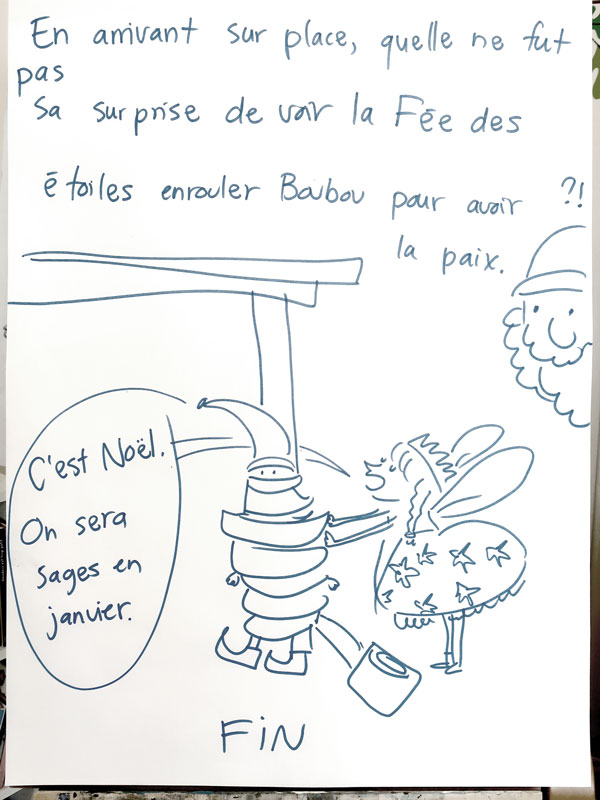 En arrivant sur place, quelle ne fut
pas
sa surprise de voir la Fée des
étoiles enrouler Boubou pour avoir ?!
la paix.
C'est Noël.
On sera
sages en
janvier.
FiN